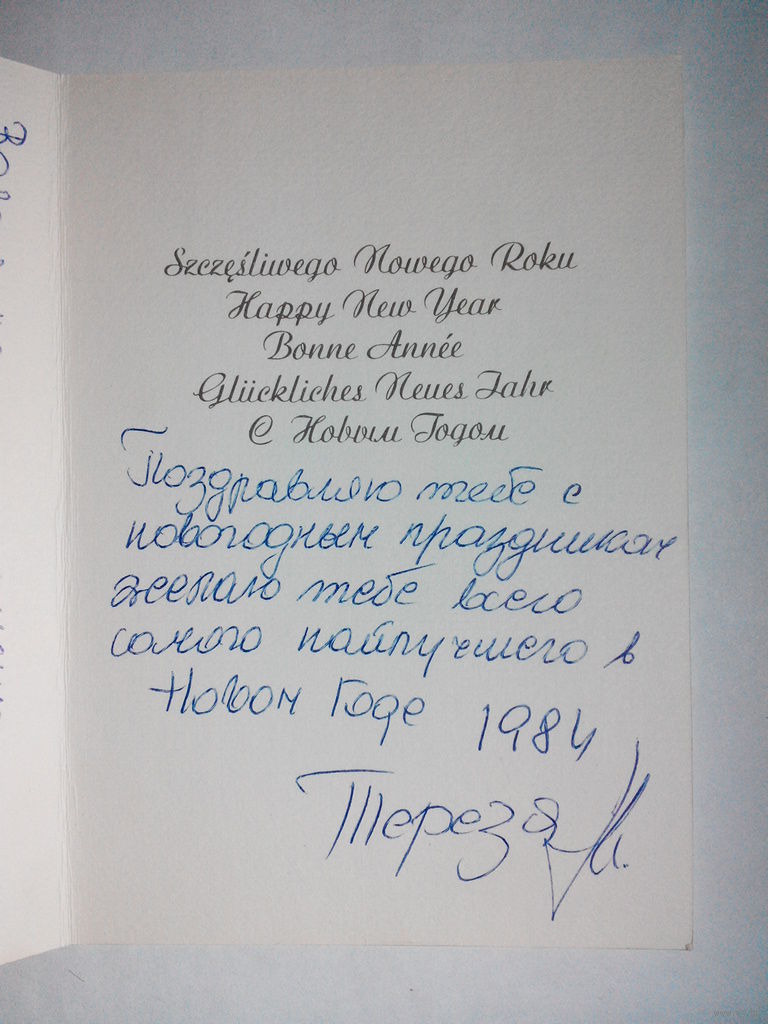 Szczęśliwego Nowego Roku
Happy New Year
Bonne Année
Glückliches Neues Jahr
С Новым Годом
Поздравляю тебе с
новогодным праздникам
желаю тебе всего
самого найлучшего в
Новом Годе 1984
Тереза